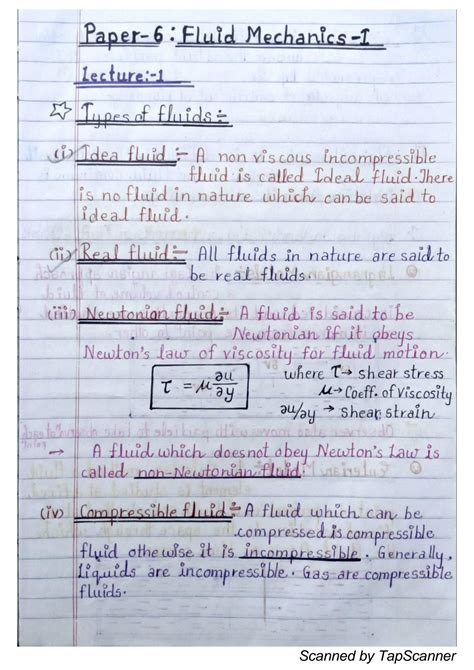 Paper-6: Fluid Mechanics-I
Lecture:-1
☆ Types of fluids:-
(i) Idea fluid :- A non viscous incompressible
fluid is called Ideal fluid. There
is no fluid in nature which can be said to
ideal fluid.
(ii) Real fluid:- All fluids in nature are said to
be real fluids.
(iii) Newtonian fluid:- A fluid is said to be
Newtonian if it obeys
Newton's law of viscosity for fluid motion:
τ = μ ∂u/∂y
where τ → shear stress
μ → Coeff. of Viscosity
∂u/∂y → shear strain
→ A fluid which does not obey Newton's Law is
called non-Newtonian fluid.
(iv) Compressible fluid:- A fluid which can be
compressed is compressible
fluid othewise it is incompressible. Generally,
Liquids are incompressible. Gas are compressible
fluids.
Scanned by TapScanner